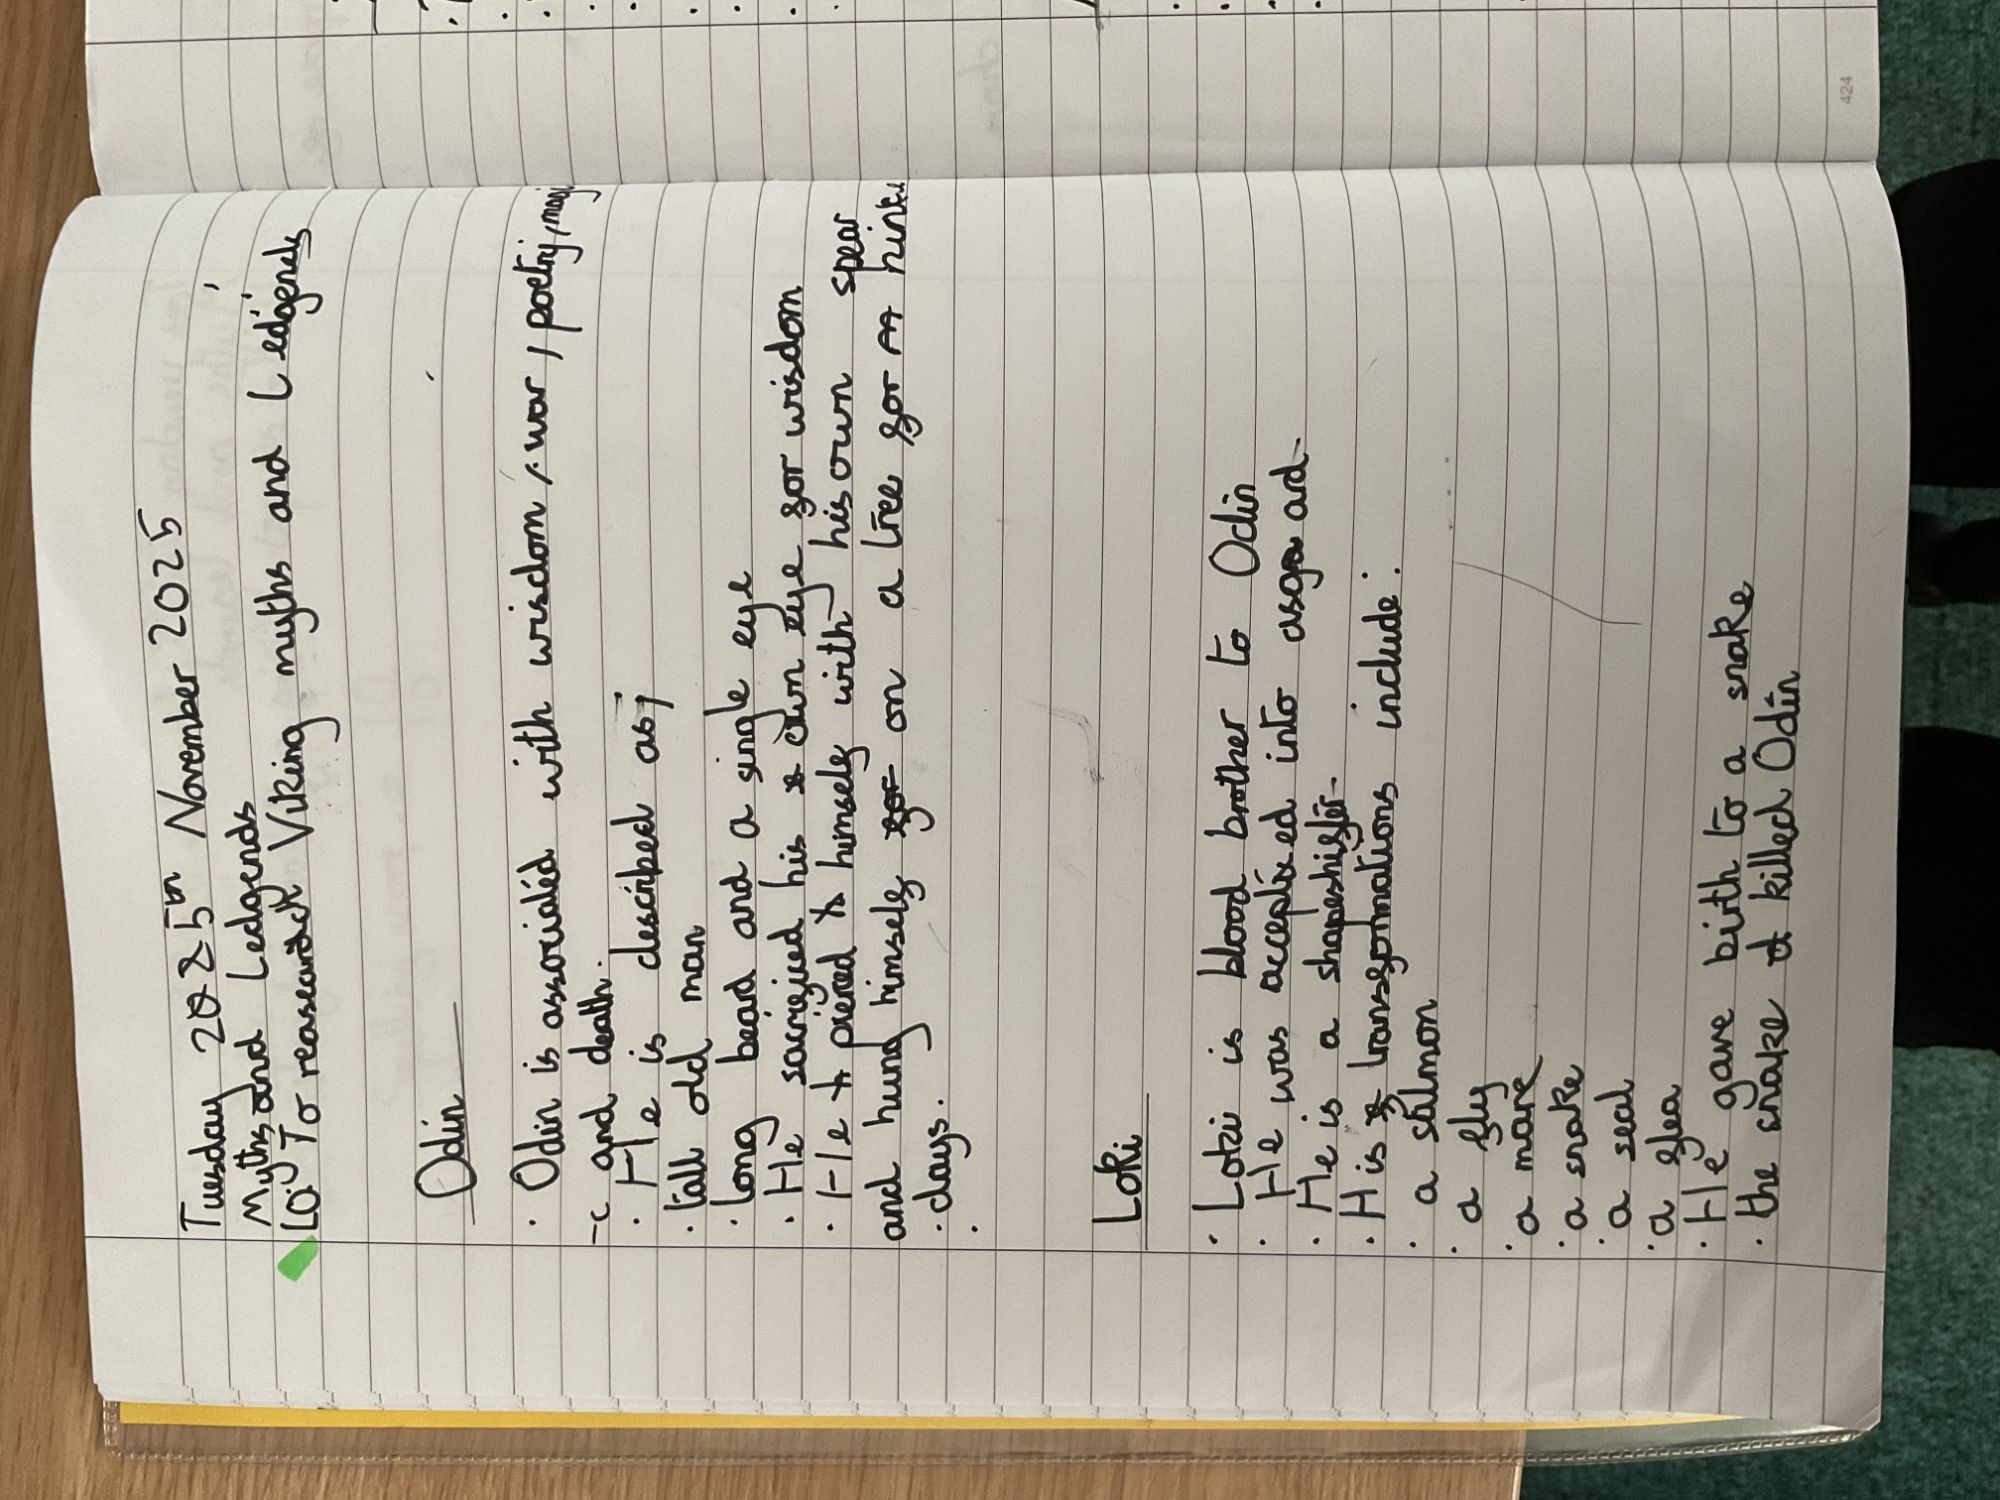 Tuesday 25th November 2025
Myths and Ledgends
LO: To research Viking myths and Ledgends
Odin
· Odin is associated with wisdom, war, poetry, magi
-c and death.
· He is described as;
· tall old man
· Long beard and a single eye
· He sacrificed his own eye for wisdom
· He pierced himself with his own spear
and hung himself on a tree for nine
· days.
·
Loki
· Loki is blood brother to Odin
· He was accepted into asgard
· He is a shapeshifter
· His transformations include:
· a salmon
· a fly
· a mare
· a snake
· a seal
· a flea
· He gave birth to a snake
· the snake killed Odin
424